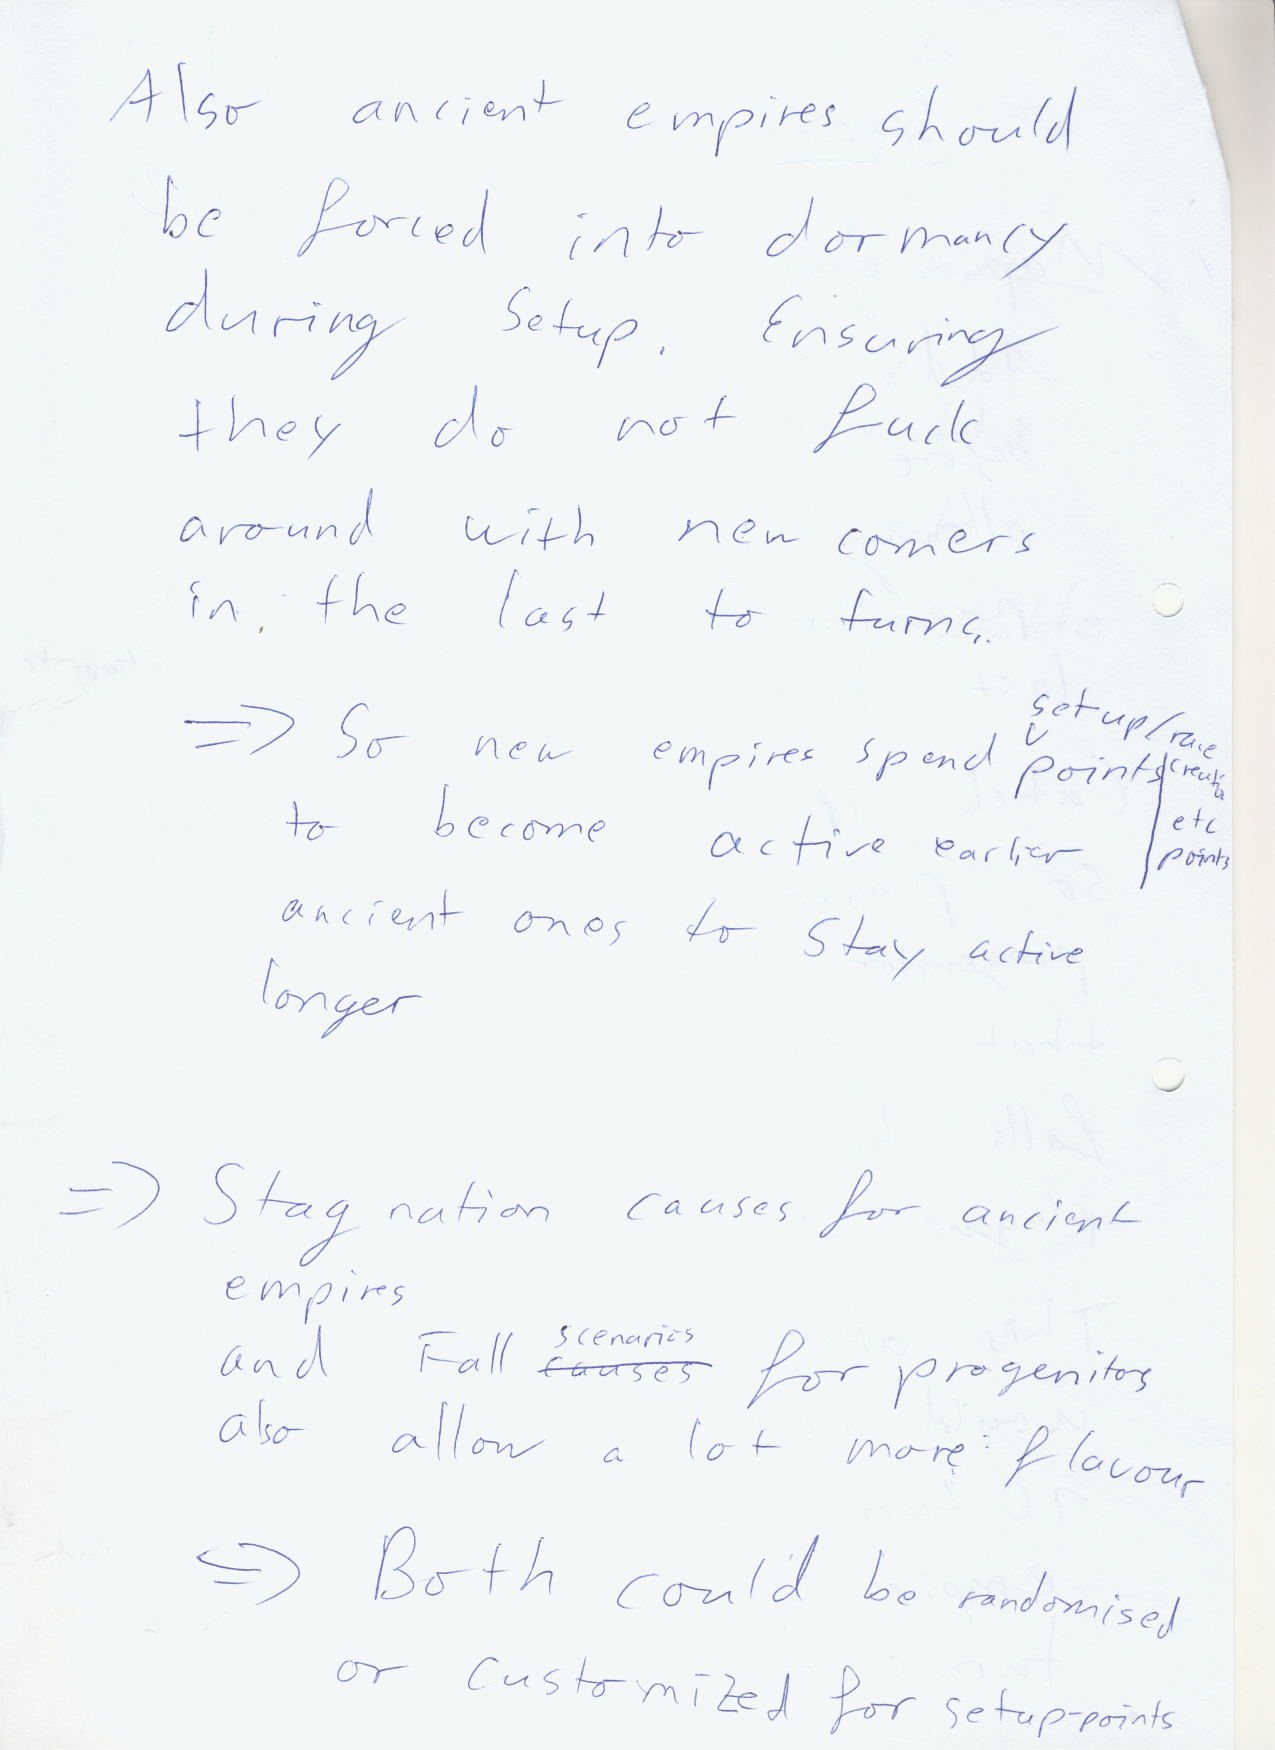 Also ancient empires should
be forced into dormancy
during Setup. Ensuring
they do not fuck
around with new comers
in the last to turns.
=> So new empires spend points
setup/race
creation
etc
points
to become active earlier
ancient ones to stay active
longer
=> Stagnation causes for ancient
empires
and Fall causes for progenitors
scenarios
also allow a lot more flavour
=> Both could be randomised
or customized for setup-points